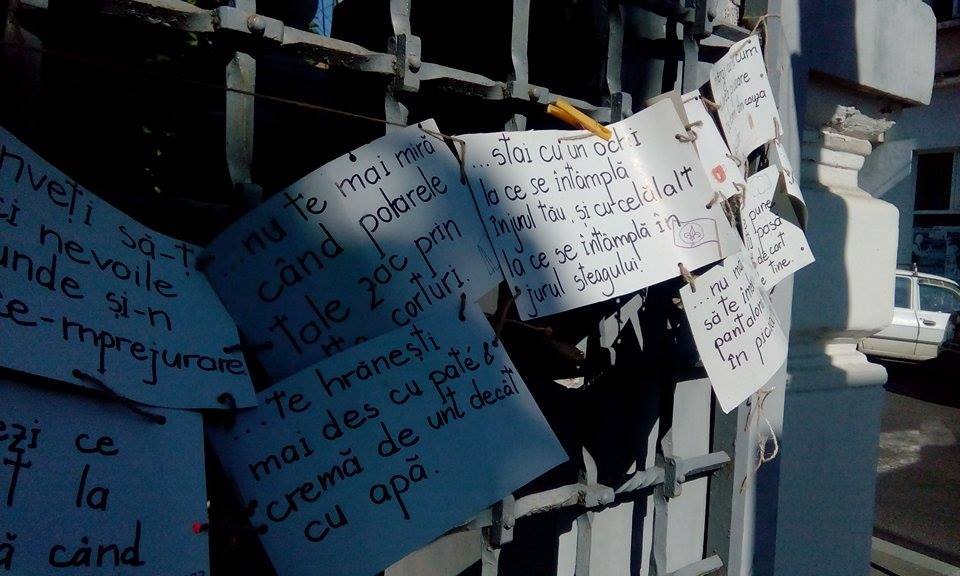 nveți să-ț
ci nevoile
unde și-n
ce-mprejurare
ezi ce
T la
ă când
...nu te mai miră
când polarele
tale zac prin
corturi.
... te hrănești
mai des cu paté &
cremă de unt decât
cu apă.
...stai cu un ochi
la ce se întâmplă
înjurul tău, și cu celălalt
la ce se întâmplă în
jurul steagului!
cum
oare
couza
pune
pasa
de cort
tine.
...nu mai
să te îmb
pantalon
în picio